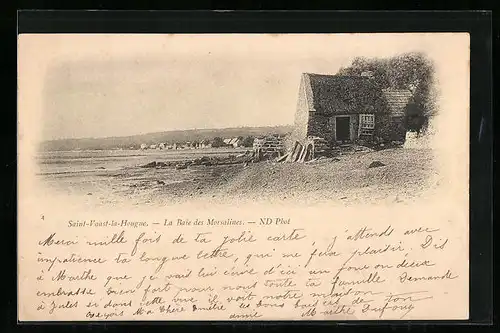 Saint-Vaast-la-Hougue. — La Baie des Morsalines. — ND Phot
Merci mille fois de ta jolie carte, j'attends avec
impatience ta longue lettre, qui me fera plaisir. Dis
à Marthe que je vais lui écrire d'ici un jour ou deux
embrasse bien fort pour nous toute ta famille Demande
à Jules si dans cette vue il voit notre maison
Reçois Ma Chère les bons baisers de ton
amie Marthe Dufouy